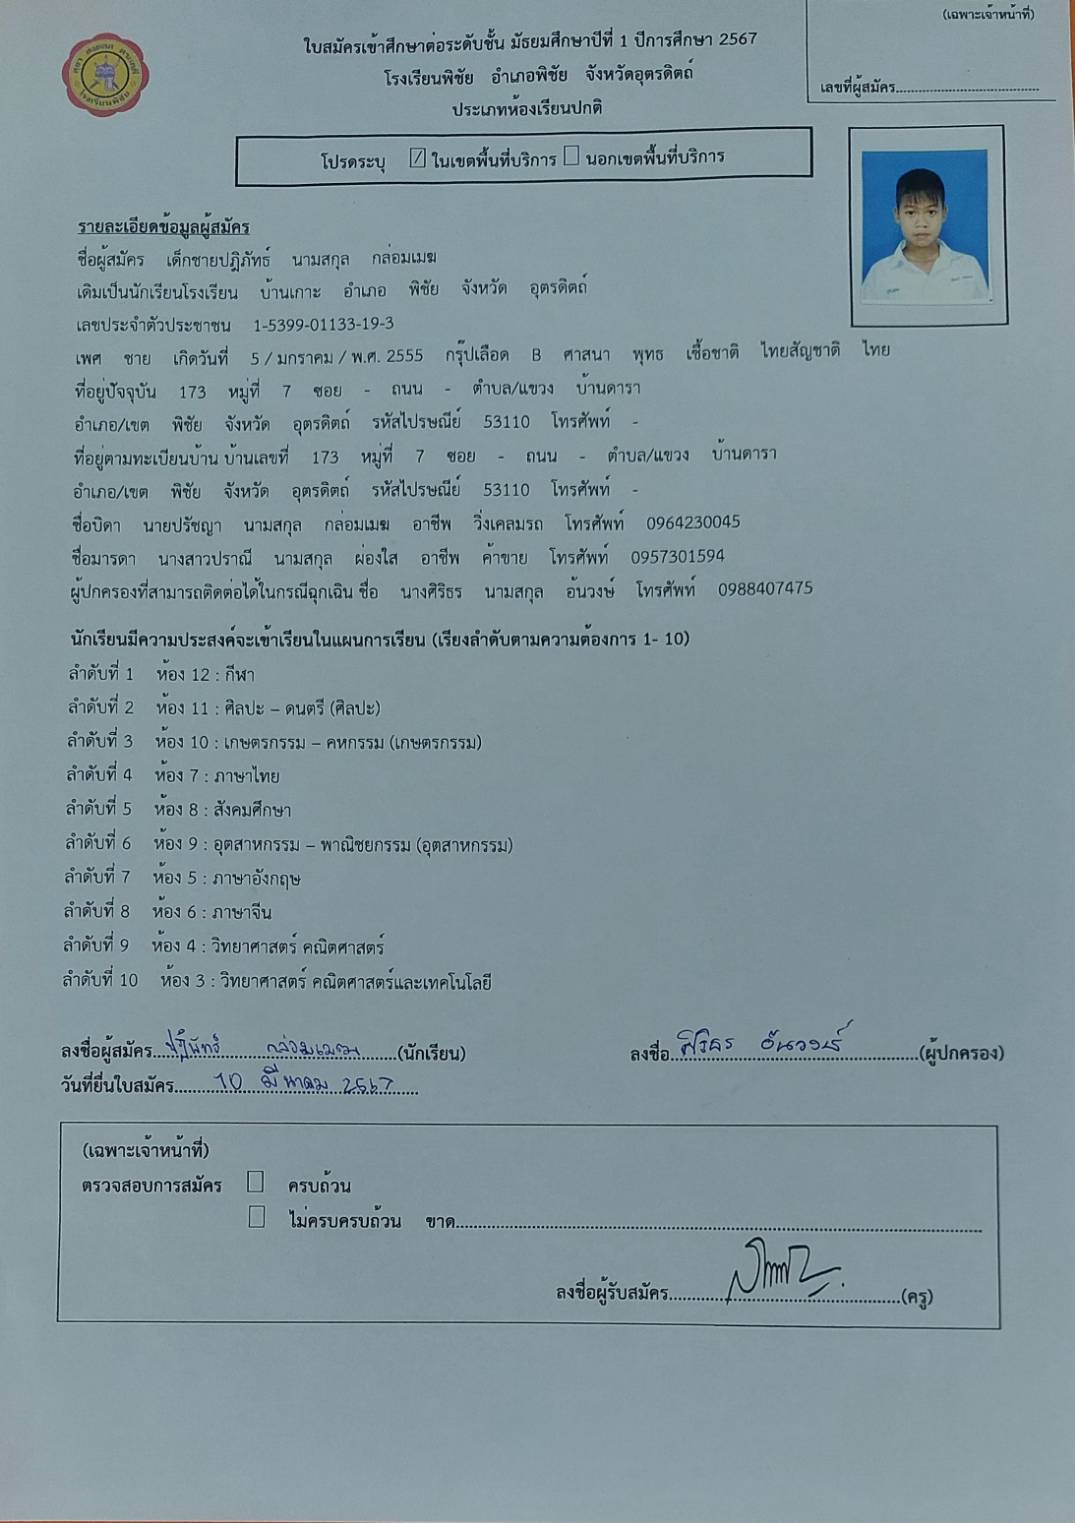 (เฉพาะเจ้าหน้าที่)
ใบสมัครเข้าศึกษาต่อระดับชั้น มัธยมศึกษาปีที่ 1 ปีการศึกษา 2567
โรงเรียนพิชัย อำเภอพิชัย จังหวัดอุตรดิตถ์
เลขที่ผู้สมัคร
ประเภทห้องเรียนปกติ
โปรดระบุ ในเขตพื้นที่บริการ นอกเขตพื้นที่บริการ
รายละเอียดข้อมูลผู้สมัคร
ชื่อผู้สมัคร เด็กชายปฎิภัทธ์ นามสกุล กล่อมเมฆ
เดิมเป็นนักเรียนโรงเรียน บ้านเกาะ อำเภอ พิชัย จังหวัด อุตรดิตถ์
เลขประจำตัวประชาชน 1-5399-01133-19-3
เพศ ชาย เกิดวันที่ 5 / มกราคม / พ.ศ. 2555 กรุ๊ปเลือด B ศาสนา พุทธ เชื้อชาติ ไทยสัญชาติ ไทย
ที่อยู่ปัจจุบัน 173 หมู่ที่ 7 ซอย - ถนน - ตำบล/แขวง บ้านดารา
อำเภอ/เขต พิชัย จังหวัด อุตรดิตถ์ รหัสไปรษณีย์ 53110 โทรศัพท์ -
ที่อยู่ตามทะเบียนบ้าน บ้านเลขที่ 173 หมู่ที่ 7 ซอย - ถนน - ตำบล/แขวง บ้านดารา
อำเภอ/เขต พิชัย จังหวัด อุตรดิตถ์ รหัสไปรษณีย์ 53110 โทรศัพท์ -
ชื่อบิดา นายปรัชญา นามสกุล กล่อมเมฆ อาชีพ วิ่งเคลมรถ โทรศัพท์ 0964230045
ชื่อมารดา นางสาวปราณี นามสกุล ผ่องใส อาชีพ ค้าขาย โทรศัพท์ 0957301594
ผู้ปกครองที่สามารถติดต่อได้ในกรณีฉุกเฉิน ชื่อ นางศิริธร นามสกุล อ้นวงษ์ โทรศัพท์ 0988407475
นักเรียนมีความประสงค์จะเข้าเรียนในแผนการเรียน (เรียงลำดับตามความต้องการ 1- 10)
ลำดับที่ 1 ห้อง 12 : กีฬา
ลำดับที่ 2 ห้อง 11 : ศิลปะ – ดนตรี (ศิลปะ)
ลำดับที่ 3 ห้อง 10 : เกษตรกรรม – คหกรรม (เกษตรกรรม)
ลำดับที่ 4 ห้อง 7 : ภาษาไทย
ลำดับที่ 5 ห้อง 8 : สังคมศึกษา
ลำดับที่ 6 ห้อง 9 : อุตสาหกรรม – พาณิชยกรรม (อุตสาหกรรม)
ลำดับที่ 7 ห้อง 5 : ภาษาอังกฤษ
ลำดับที่ 8 ห้อง 6 : ภาษาจีน
ลำดับที่ 9 ห้อง 4 : วิทยาศาสตร์ คณิตศาสตร์
ลำดับที่ 10 ห้อง 3 : วิทยาศาสตร์ คณิตศาสตร์และเทคโนโลยี
ลงชื่อผู้สมัคร ปฎิภัทธ์ กล่อมเมฆ (นักเรียน) ลงชื่อ ศิริธร อ้นวงษ์ (ผู้ปกครอง)
วันที่ยื่นใบสมัคร 10 มีนาคม 2567
(เฉพาะเจ้าหน้าที่)
ตรวจสอบการสมัคร ครบถ้วน
ไม่ครบครบถ้วน ขาด
ลงชื่อผู้รับสมัคร (ครู)